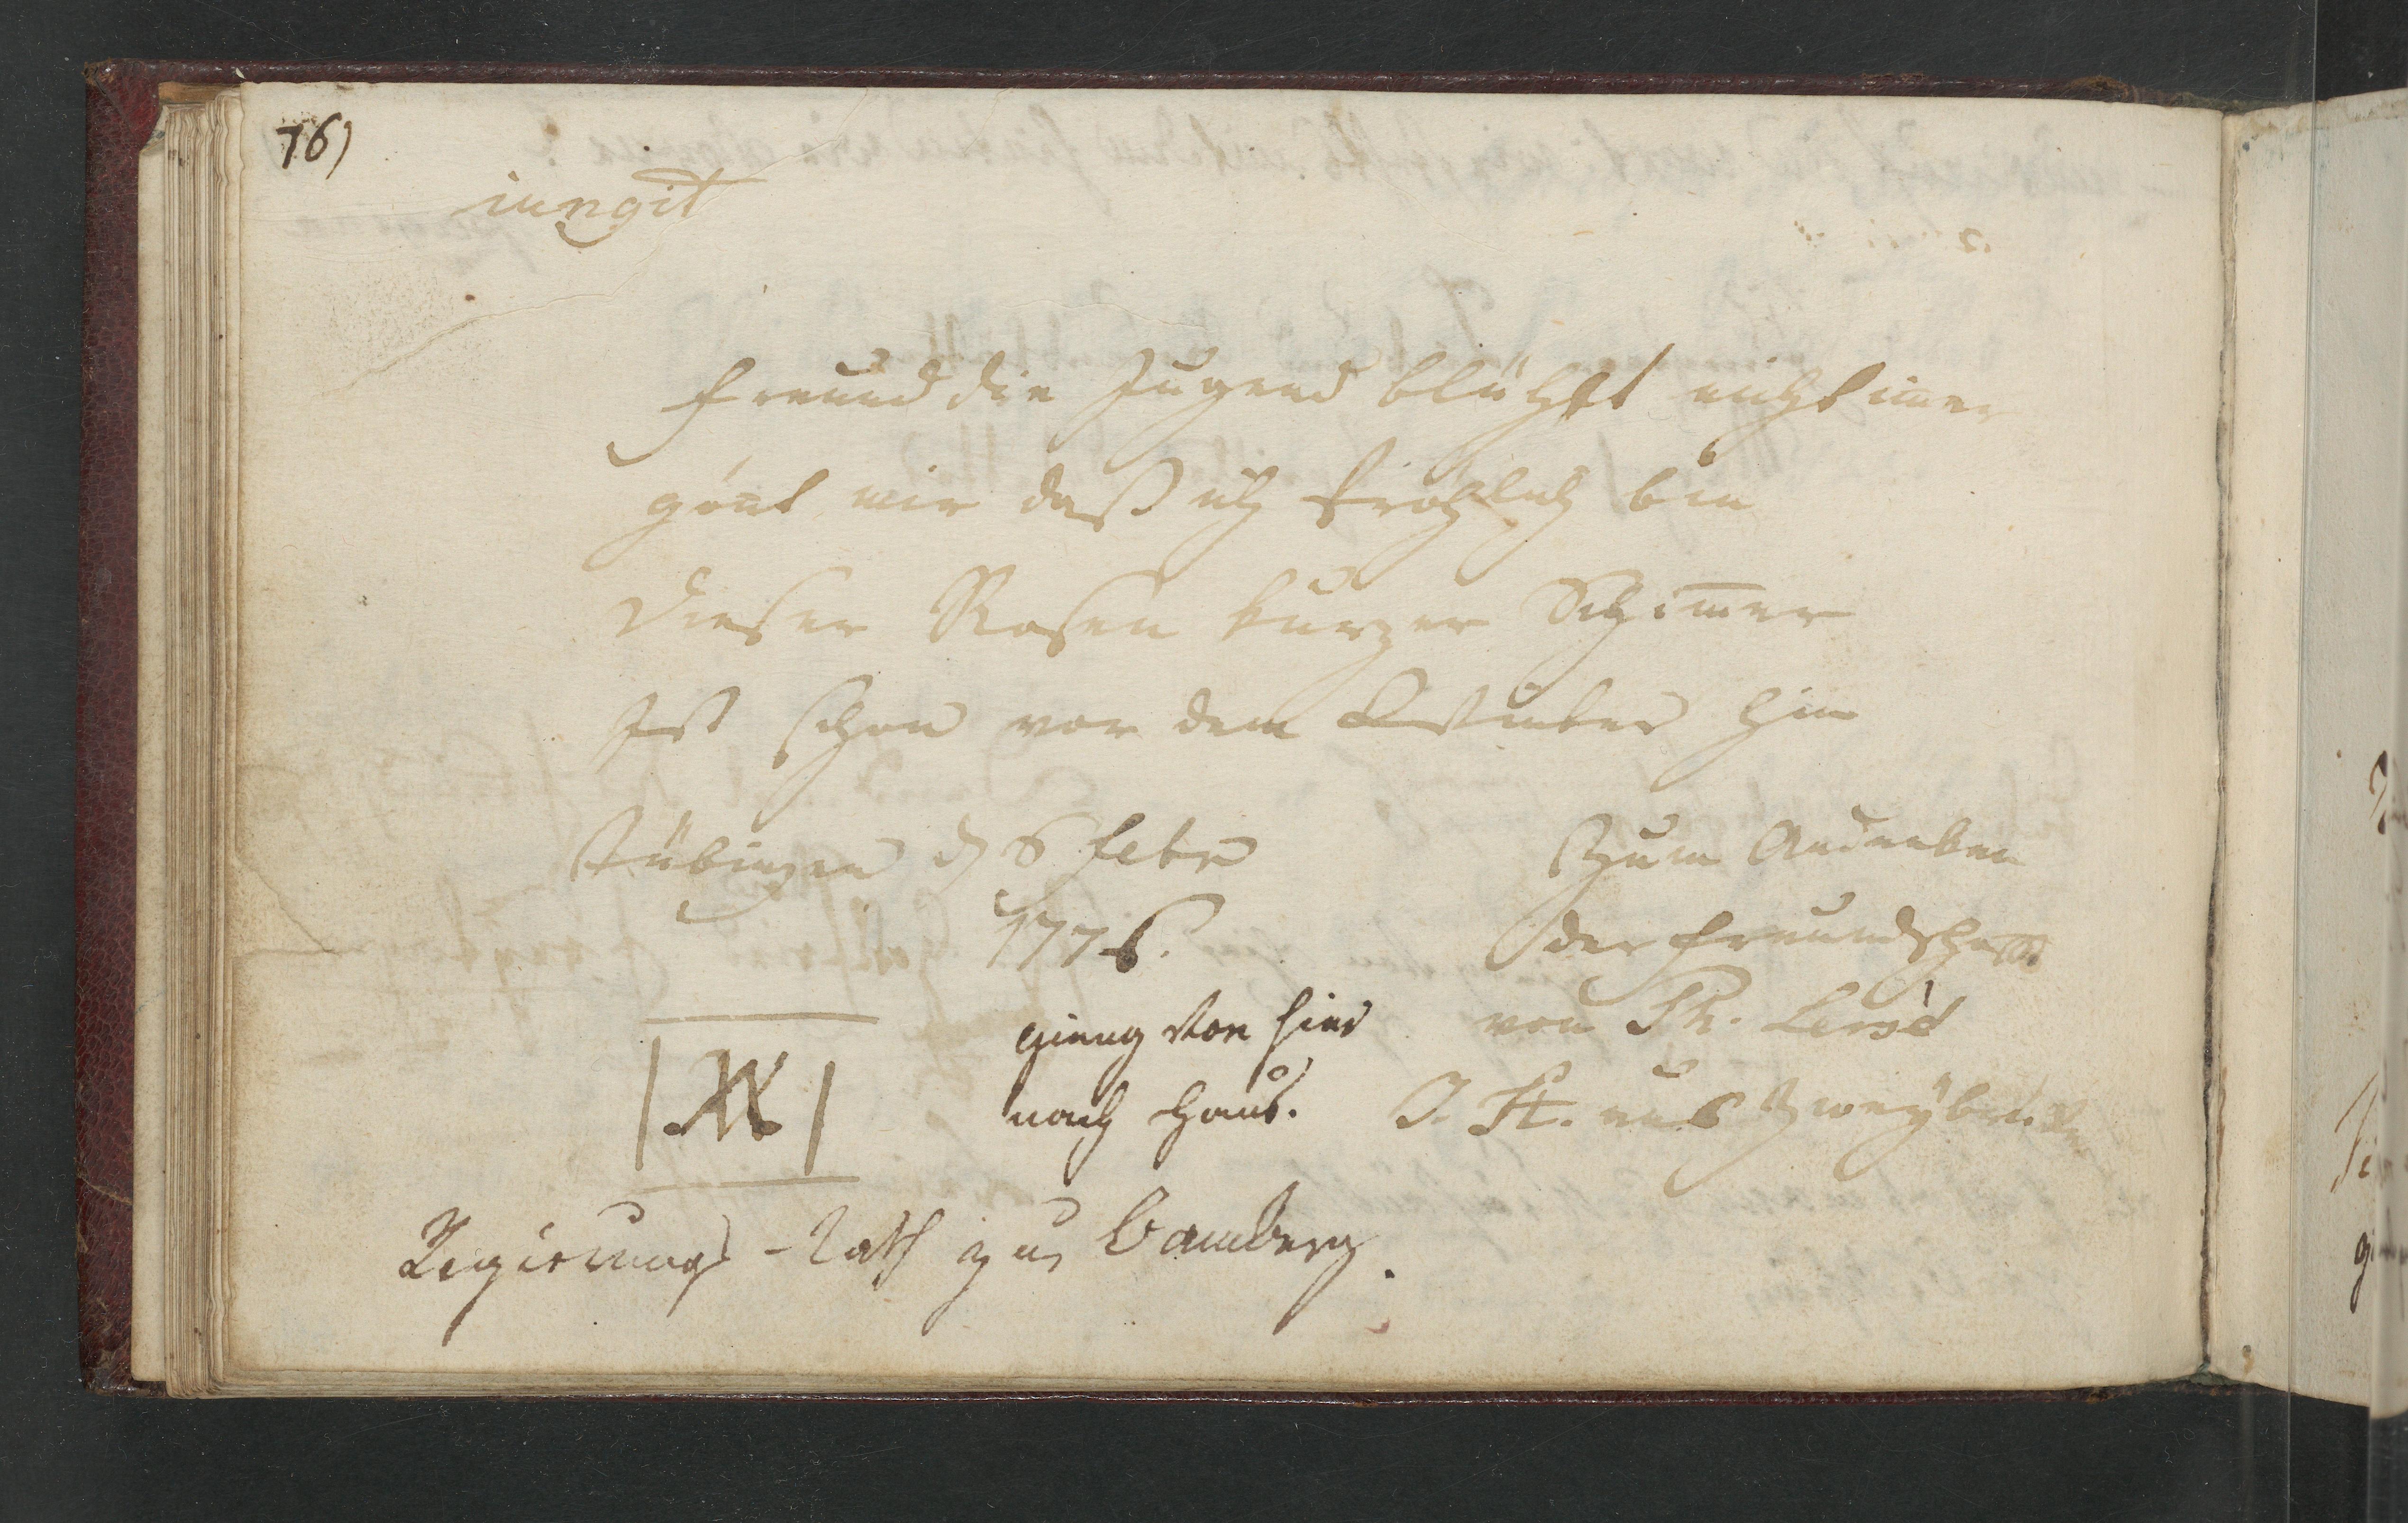 76)
iungit
Freund die Jugend blühtt nicht im̅er
gön̅t mir daß ich frölich bin
Dieser Rosen kurzer Schim̅er
Ist schon vor dem Winter hin
Tübingen d 6 Febr
1776.
Zum Andenken
der Freundschafft
von Ph. Lersé
J. St. aus Zweybrücken
gieng von hier
nach Haus.
Regierungs-Rath zu Bamberg.